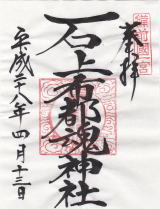 備前国一宮
奉拝
石上布都魂神社
平成二八年四月十三日